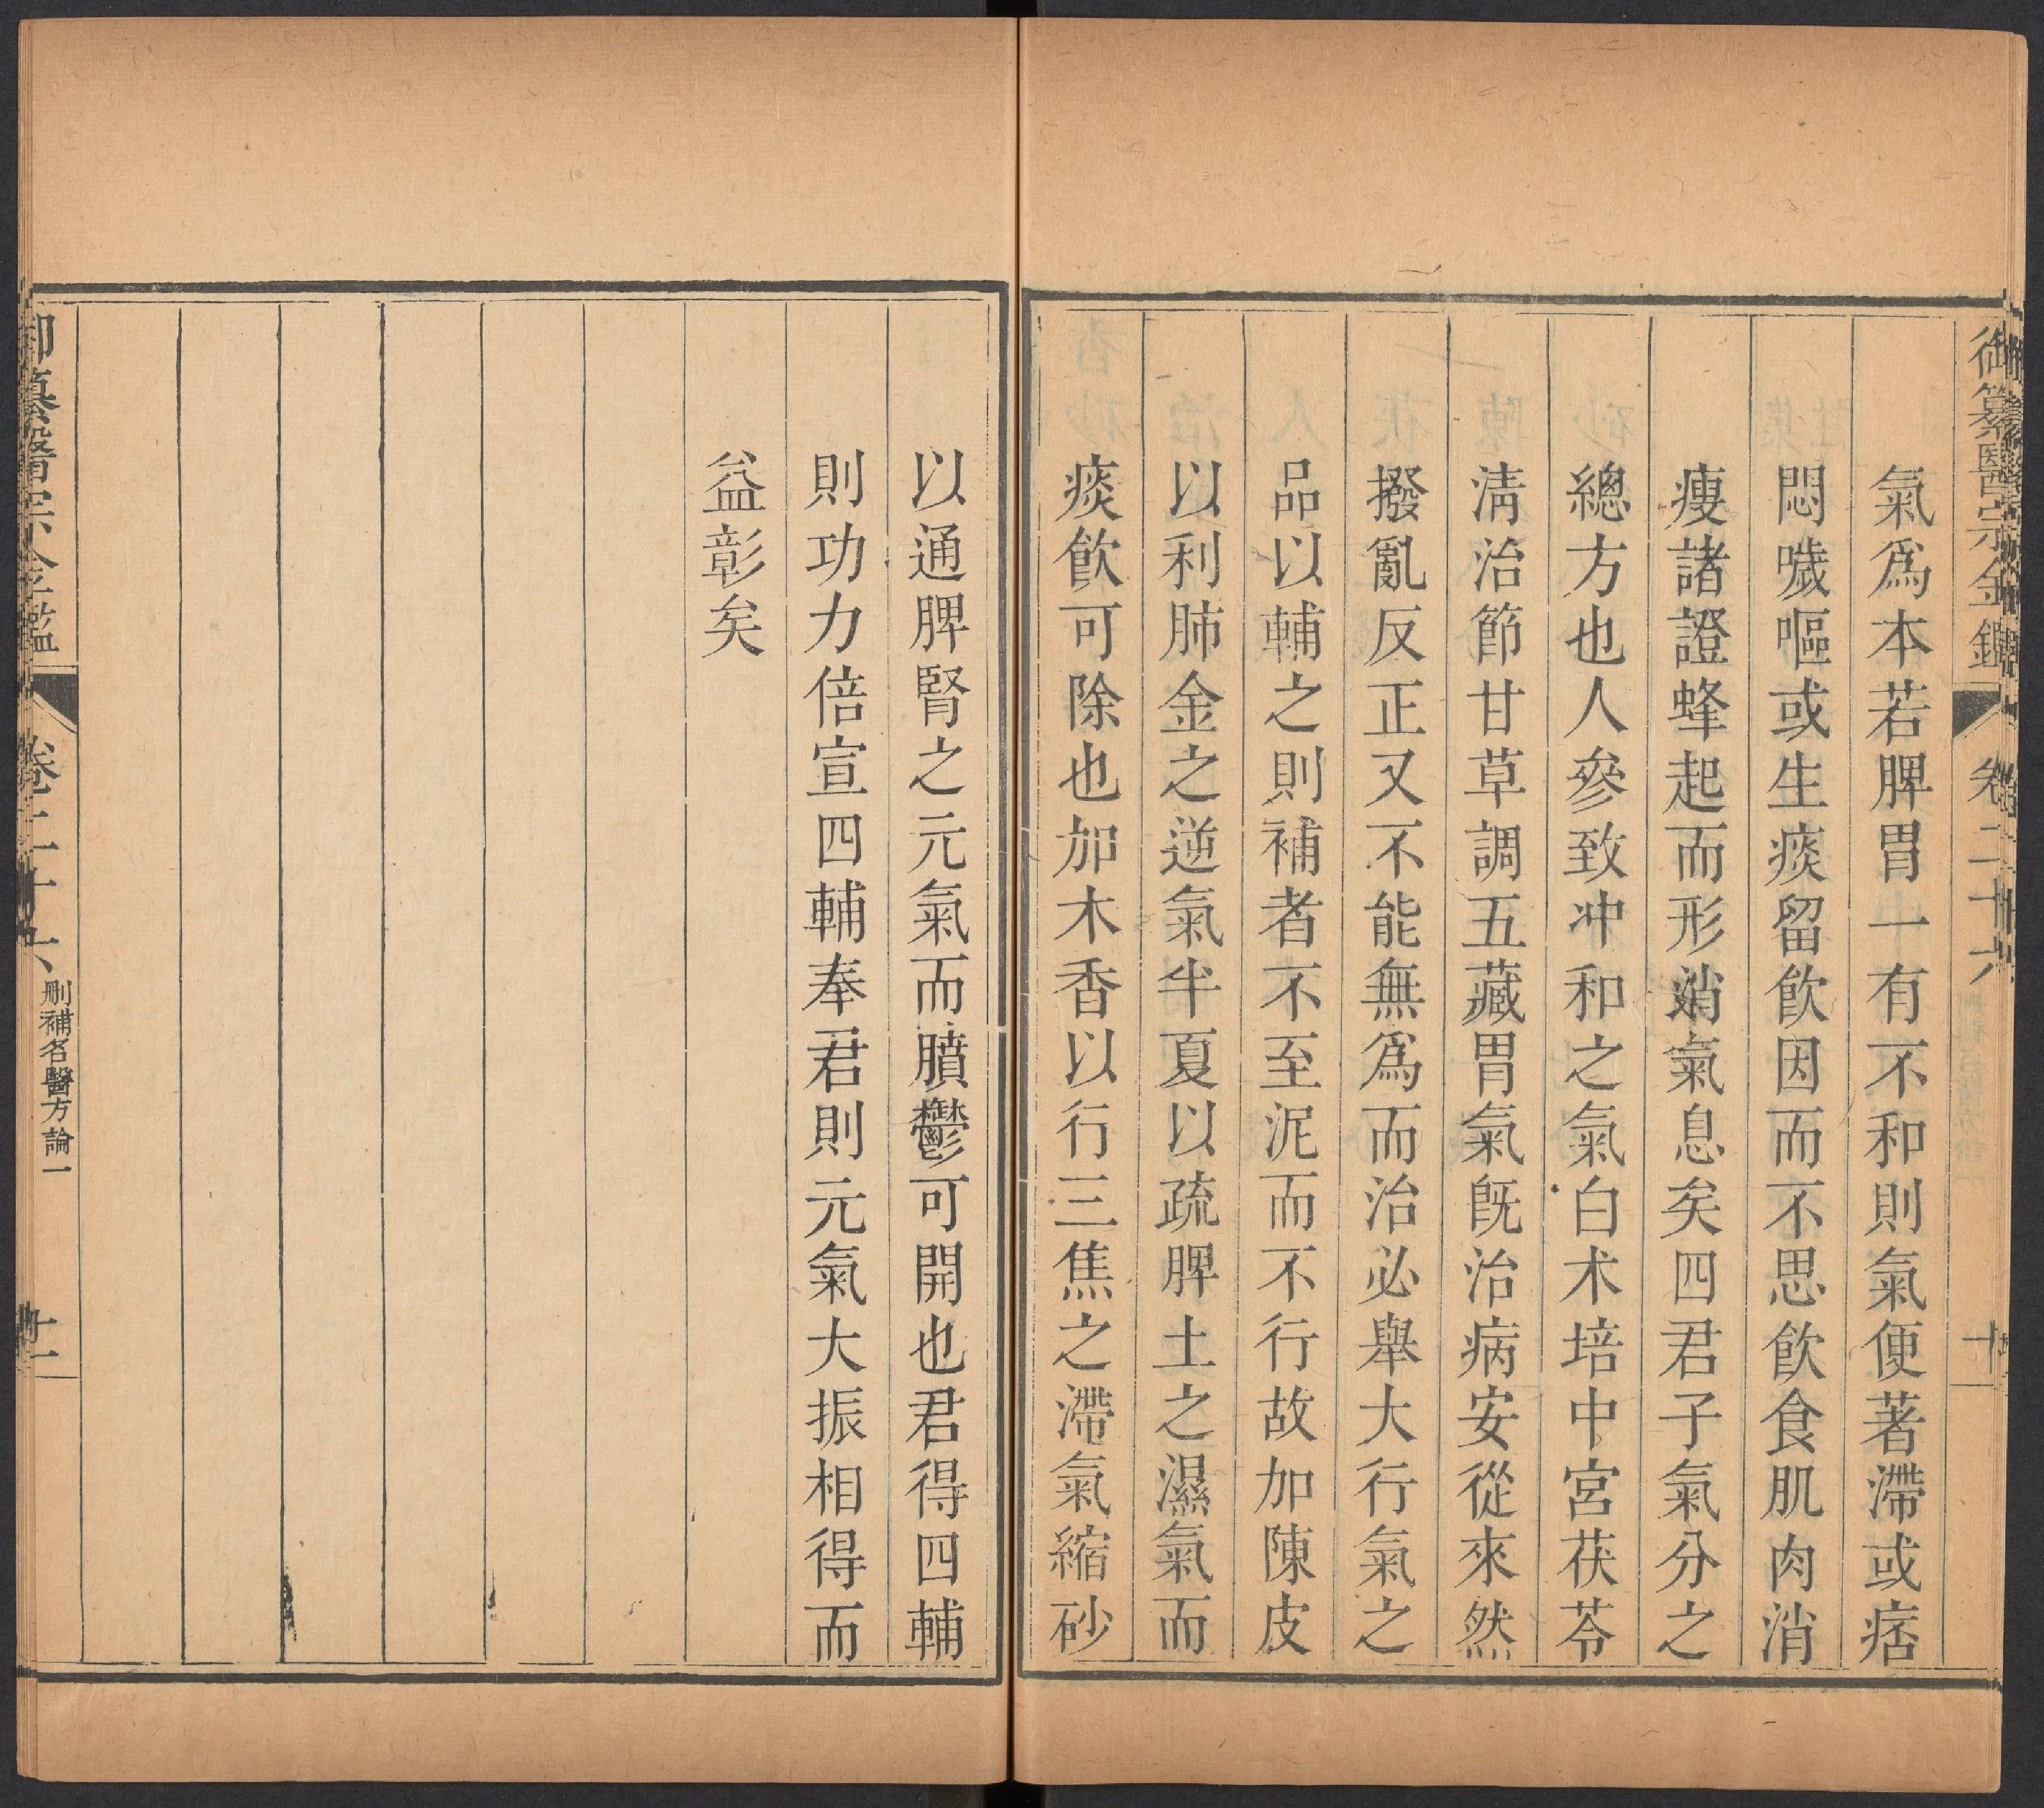 御纂醫宗金鑑 卷二十六 十
氣爲本若脾胃一有不和則氣便著滯或痞
悶噦嘔或生痰留飮因而不思飮食肌肉消
瘦諸證蜂起而形消氣息矣四君子氣分之
總方也人參致冲和之氣白术培中宮茯苓
淸治節甘草調五藏胃氣旣治病安從來然
撥亂反正又不能無爲而治必舉大行氣之
品以輔之則補者不至泥而不行故加陳皮
以利肺金之逆氣半夏以疏脾土之濕氣而
痰飮可除也加木香以行三焦之滯氣縮砂
以通脾腎之元氣而膹鬱可開也君得四輔
則功力倍宣四輔奉君則元氣大振相得而
益彰矣
御纂醫宗金鑑 卷二十六 刪補名醫方論一 十一